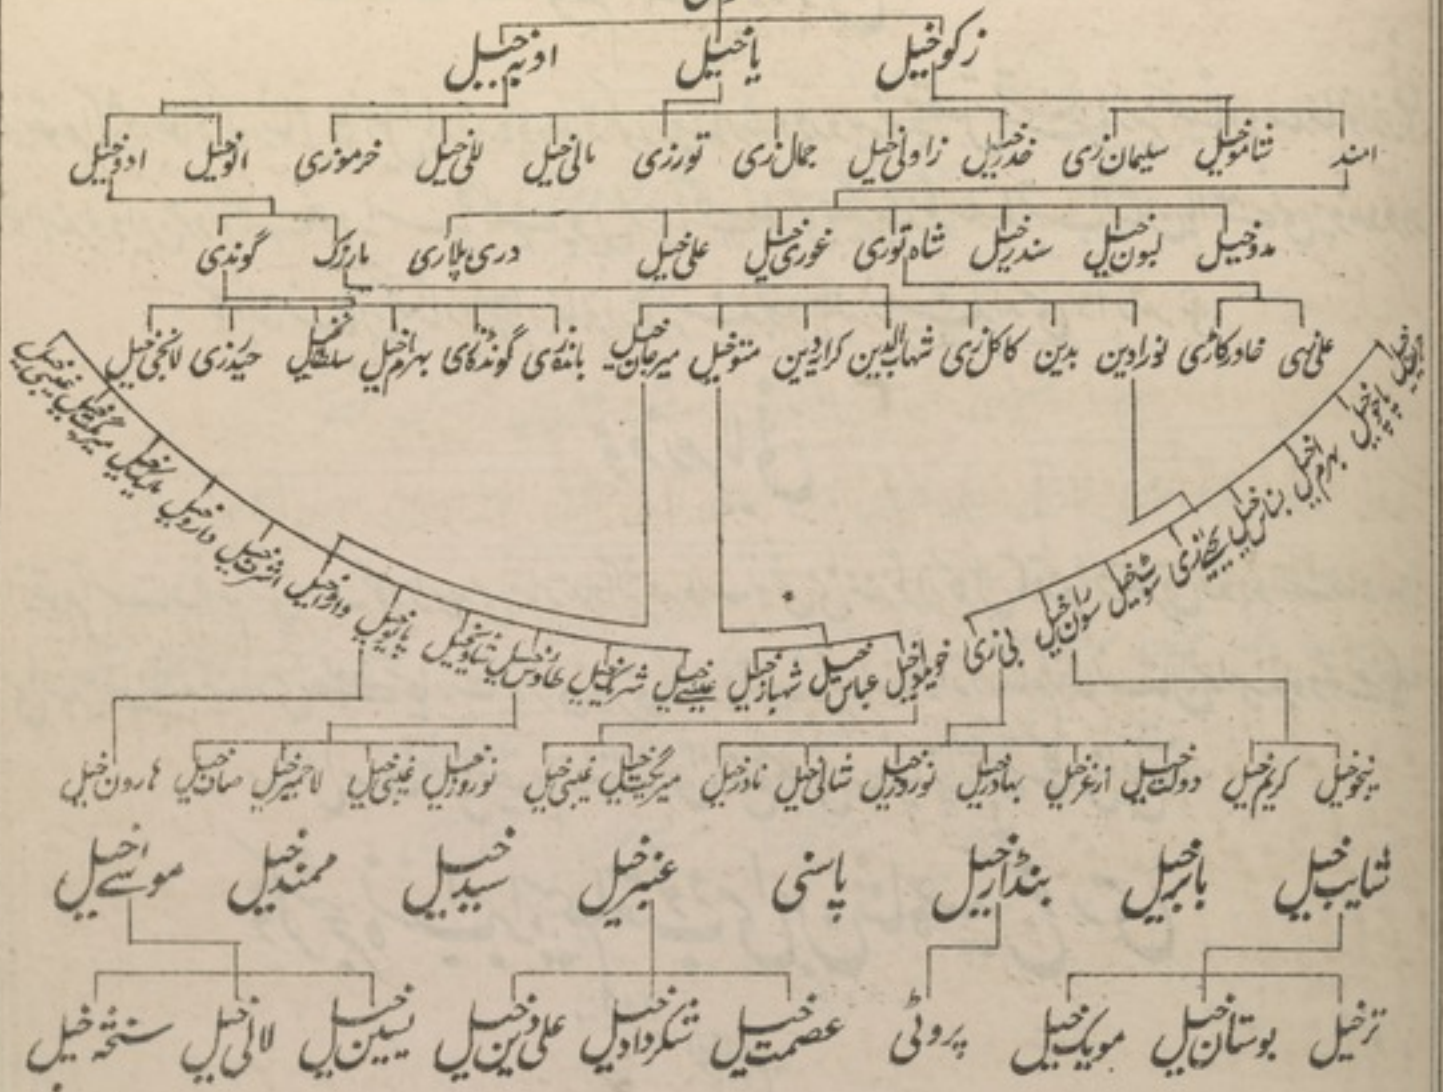 زکوخیل یاخیل اوبہ خیل
امند شاموخیل سلیمان زی خدرخیل زاونی خیل جمال زی تورزی مالی خیل للی خیل خرموزی انوخیل ادوخیل
مدوخیل لبون خیل سندرخیل شاہ توری غوری خیل علی خیل دری پلاری مارزک گوندی
علی زی خادرکازی نورادین بدین کاکل زی شہاب الدین کرایدین متوخیل میرجان خیل باندکای گوندکای بہرام خیل سلطان خیل حیدرزی لانجی خیل
پاچوخیل
بہرام خیل
بنارس خیل
یحیےٰ زی
بی زی
خویدادخیل
عباس خیل
شہبازخیل
عیسےٰ خیل
طاؤس خیل
پایوخیل
اشرف خیل
داروخیل
غیبی خیل
نیخوخیل کریم خیل دولت خیل ازغرخیل بہادرخیل نوردادخیل شانی خیل نادرخیل میرگجت خیل غیبی خیل نوروزخیل غیبی خیل لاجمیرخیل صان خیل ہارون خیل
شایب خیل بابرخیل بنڈارخیل پاسنی عنبرخیل سیدخیل ممندخیل موسےٰ خیل
ترخیل بوستان خیل مویک خیل پروٹی عصمت خیل شکردادخیل علی دین خیل یسین خیل لالی خیل سنختہ خیل